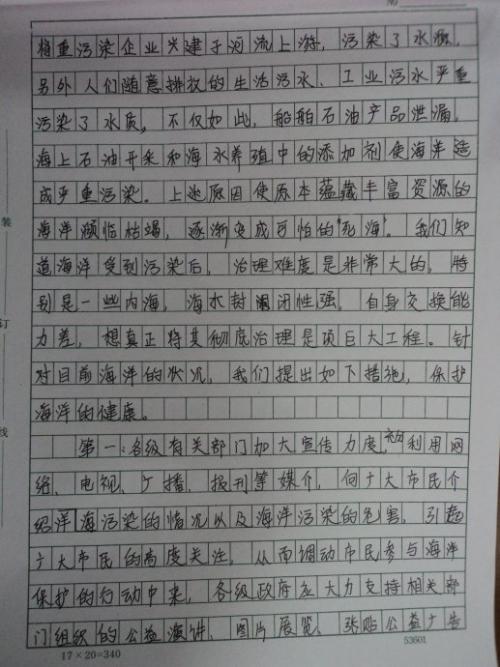 将重污染企业兴建于河流上游，污染了水源，
另外人们随意排放的生活污水、工业污水严重
污染了水质。不仅如此，船舶石油产品泄漏，
海上石油开采和海水养殖中的添加剂使海洋造
成严重污染。上述原因使原本蕴藏丰富资源的
海洋濒临枯竭，逐渐变成可怕的"死海"。我们知
道海洋受到污染后，治理难度是非常大的，特
别是一些内海，海水封闭性强，自身交换能
力差，想真正将其彻底治理是项巨大工程。针
对目前海洋的状况，我们提出如下措施，保护
海洋的健康。
第一：各级有关部门加大宣传力度，利用网
络、电视、广播、报刊等媒介，向广大市民介
绍洋海污染的情况以及海洋污染的危害，引起
广大市民的高度关注，从而调动市民参与海洋
保护的行动中来，各级政府应大力支持相关部
门组织的公益演讲、图片展览、张贴公益广告
17×20=340
53601
装
订
线